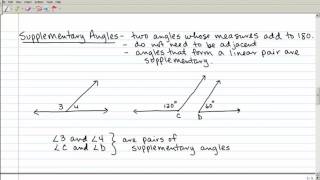 Supplementary Angles - two angles whose measures add to 180.
- do not need to be adjacent
- angles that form a linear pair are
supplementary.
3 4 120° 60°
C D
∠3 and ∠4 } are pairs of
∠C and ∠D } supplementary angles